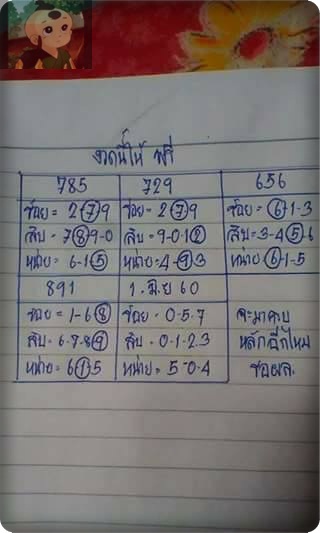 งวดนี้ให้ ฟรี
785 729 656
ร้อย = 2-7-9 ร้อย = 2-7-9 ร้อย = 6-1-3
สิบ = 7-8-9-0 สิบ = 9-0-1-2 สิบ = 3-4-5-6
หน่วย = 6-1-5 หน่วย = 4-9-3 หน่วย 6-1-5
891 1. มิ.ย 60
ร้อย = 1-6-8 ร้อย = 0-5-7 จะมาครบ
สิบ = 6-7-8-9 สิบ = 0-1-2-3 หลักอีกไหม
หน่วย = 6-1-5 หน่วย = 5-0-4 รอผล